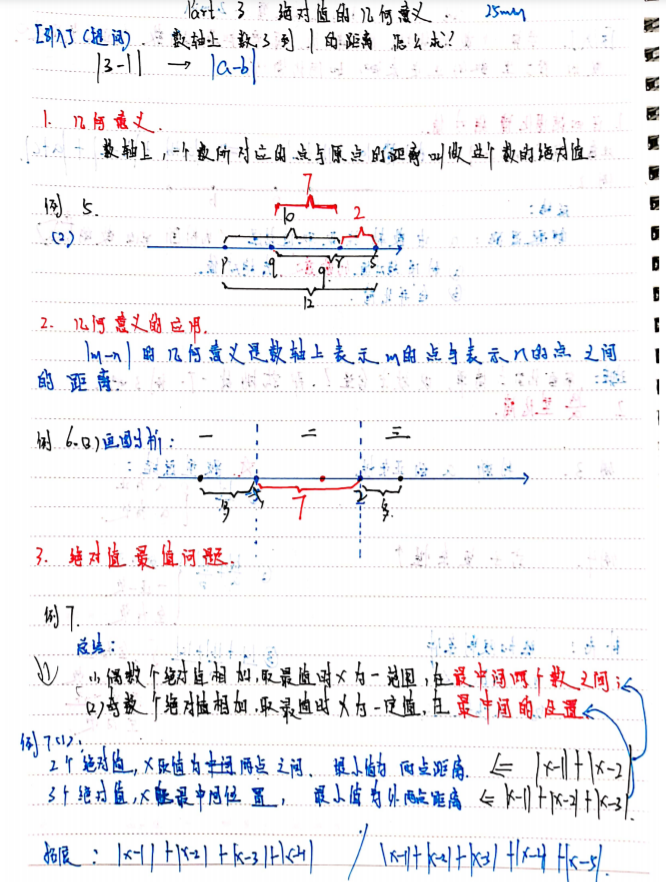 Part 3 绝对值的几何意义. 25min
[引入](提问). 数轴上 数3到1的距离 怎么求?
|3-1| → |a-b|
1. 几何意义.
数轴上,一个数所对应的点与原点的距离叫做这个数的绝对值.
例 5.
(2)
7
10 2
P q r s
9
12
2. 几何意义的应用.
|m-n| 的几何意义是数轴上表示m的点与表示n的点之间
的距离.
例 6.(2)画图分析: 一 二 三
-5 2
3 7 3
3. 绝对值最值问题.
例 7.
总结:
(1) 偶数个绝对值相加,取最值时X为一范围,在最中间两个数之间;
(2) 奇数个绝对值相加,取最值时X为一定值,在最中间的位置
例 7(1):
2个绝对值,X取值为中间两点之间. 最小值为 两点距离. ⇐ |x-1|+|x-2|
3个绝对值,X取最中间位置, 最小值为外两点距离 ⇐ |x-1|+|x-2|+|x-3|.
拓展: |x-1|+|x-2|+|x-3|+|x-4| / |x-1|+|x-2|+|x-3|+|x-4|+|x-5|.